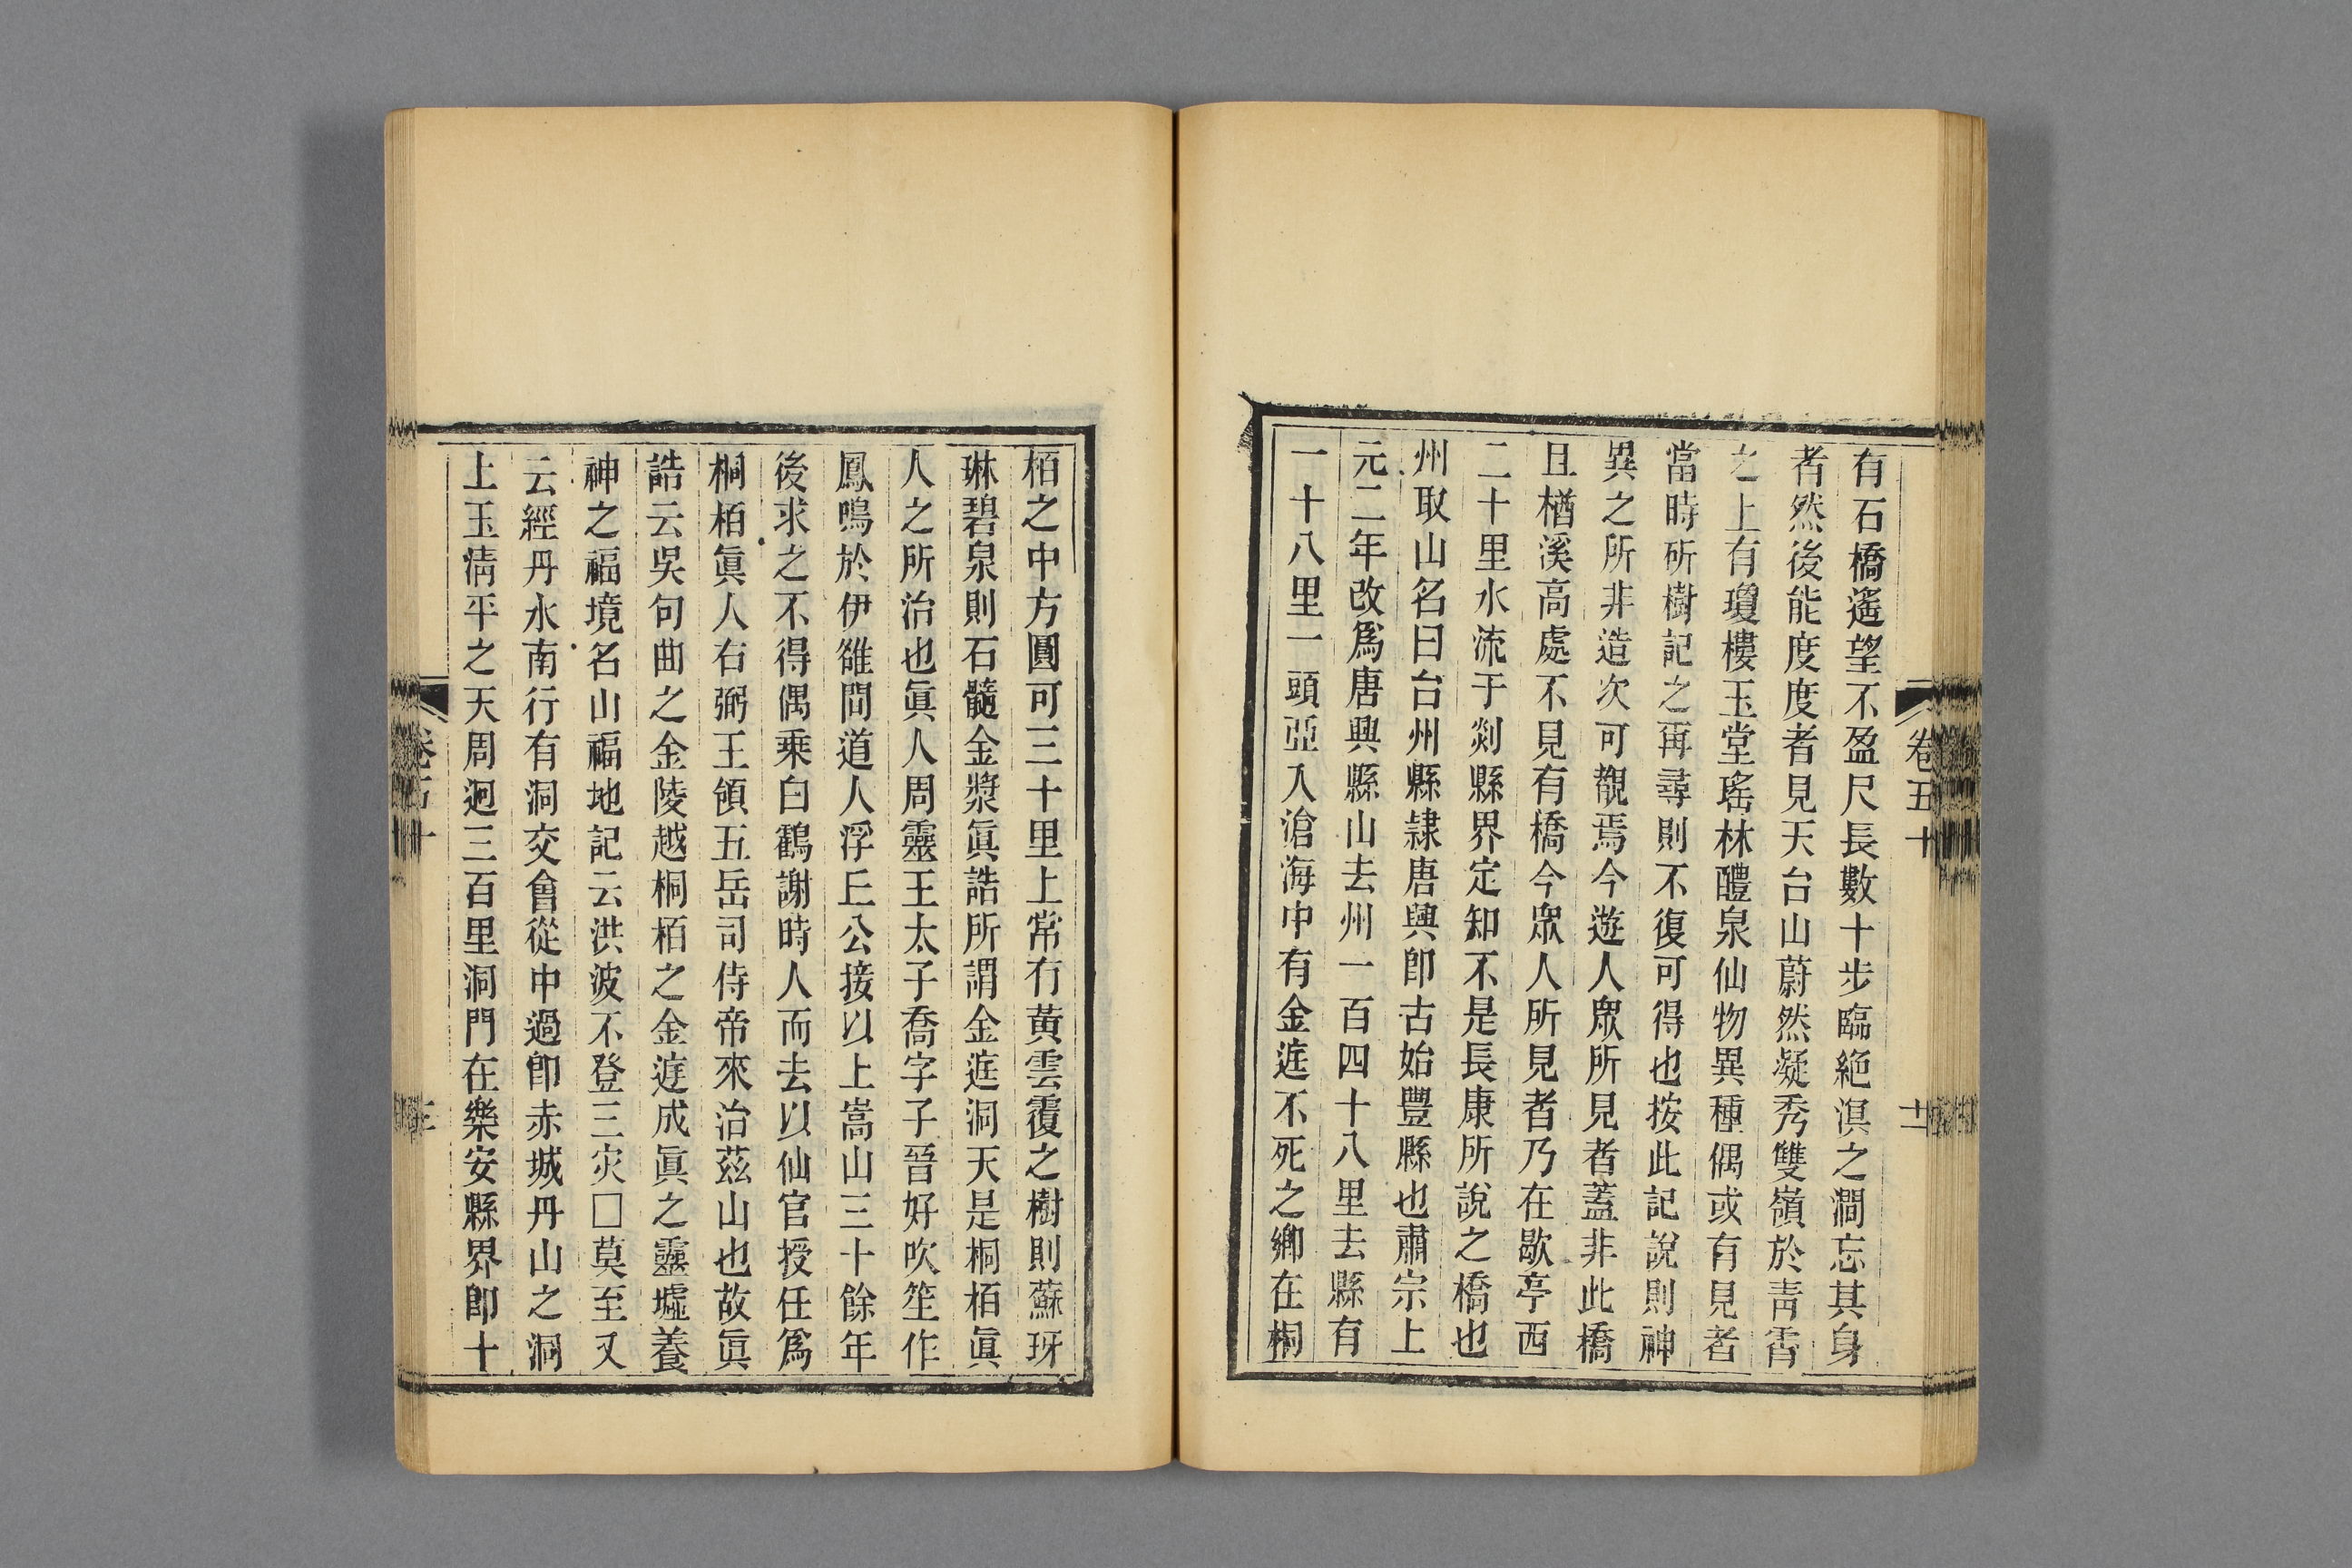 卷五十
十一
有石橋遙望不盈尺長數十步臨絶溟之澗忘其身
者然後能度度者見天台山蔚然凝秀雙嶺於靑霄
之上有瓊樓玉堂瑤林醴泉仙物異種偶或有見者
當時斫樹記之再尋則不復可得也按此記說則神
異之所非造次可覩焉今遊人衆所見者蓋非此橋
且楢溪高處不見有橋今衆人所見者乃在歇亭西
二十里水流于剡縣界定知不是長康所說之橋也
州取山名曰台州縣隷唐興卽古始豐縣也肅宗上
元二年改爲唐興縣山去州一百四十八里去縣有
一十八里一頭亞入滄海中有金庭不死之鄉在桐
栢之中方圓可三十里上常有黃雲覆之樹則蘇玡
琳碧泉則石髓金漿眞誥所謂金庭洞天是桐栢眞
人之所治也眞人周靈王太子喬字子晉好吹笙作
鳳鳴於伊雒間道人浮丘公接以上嵩山三十餘年
後求之不得偶乘白鶴謝時人而去以仙官授任爲
桐栢眞人右弼王領五岳司侍帝來治茲山也故眞
誥云吳句曲之金陵越桐栢之金庭成眞之靈墟養
神之福境名山福地記云洪波不登三灾□莫至又
云經丹水南行有洞交會從中過卽赤城丹山之洞
上玉淸平之天周廻三百里洞門在樂安縣界卽十